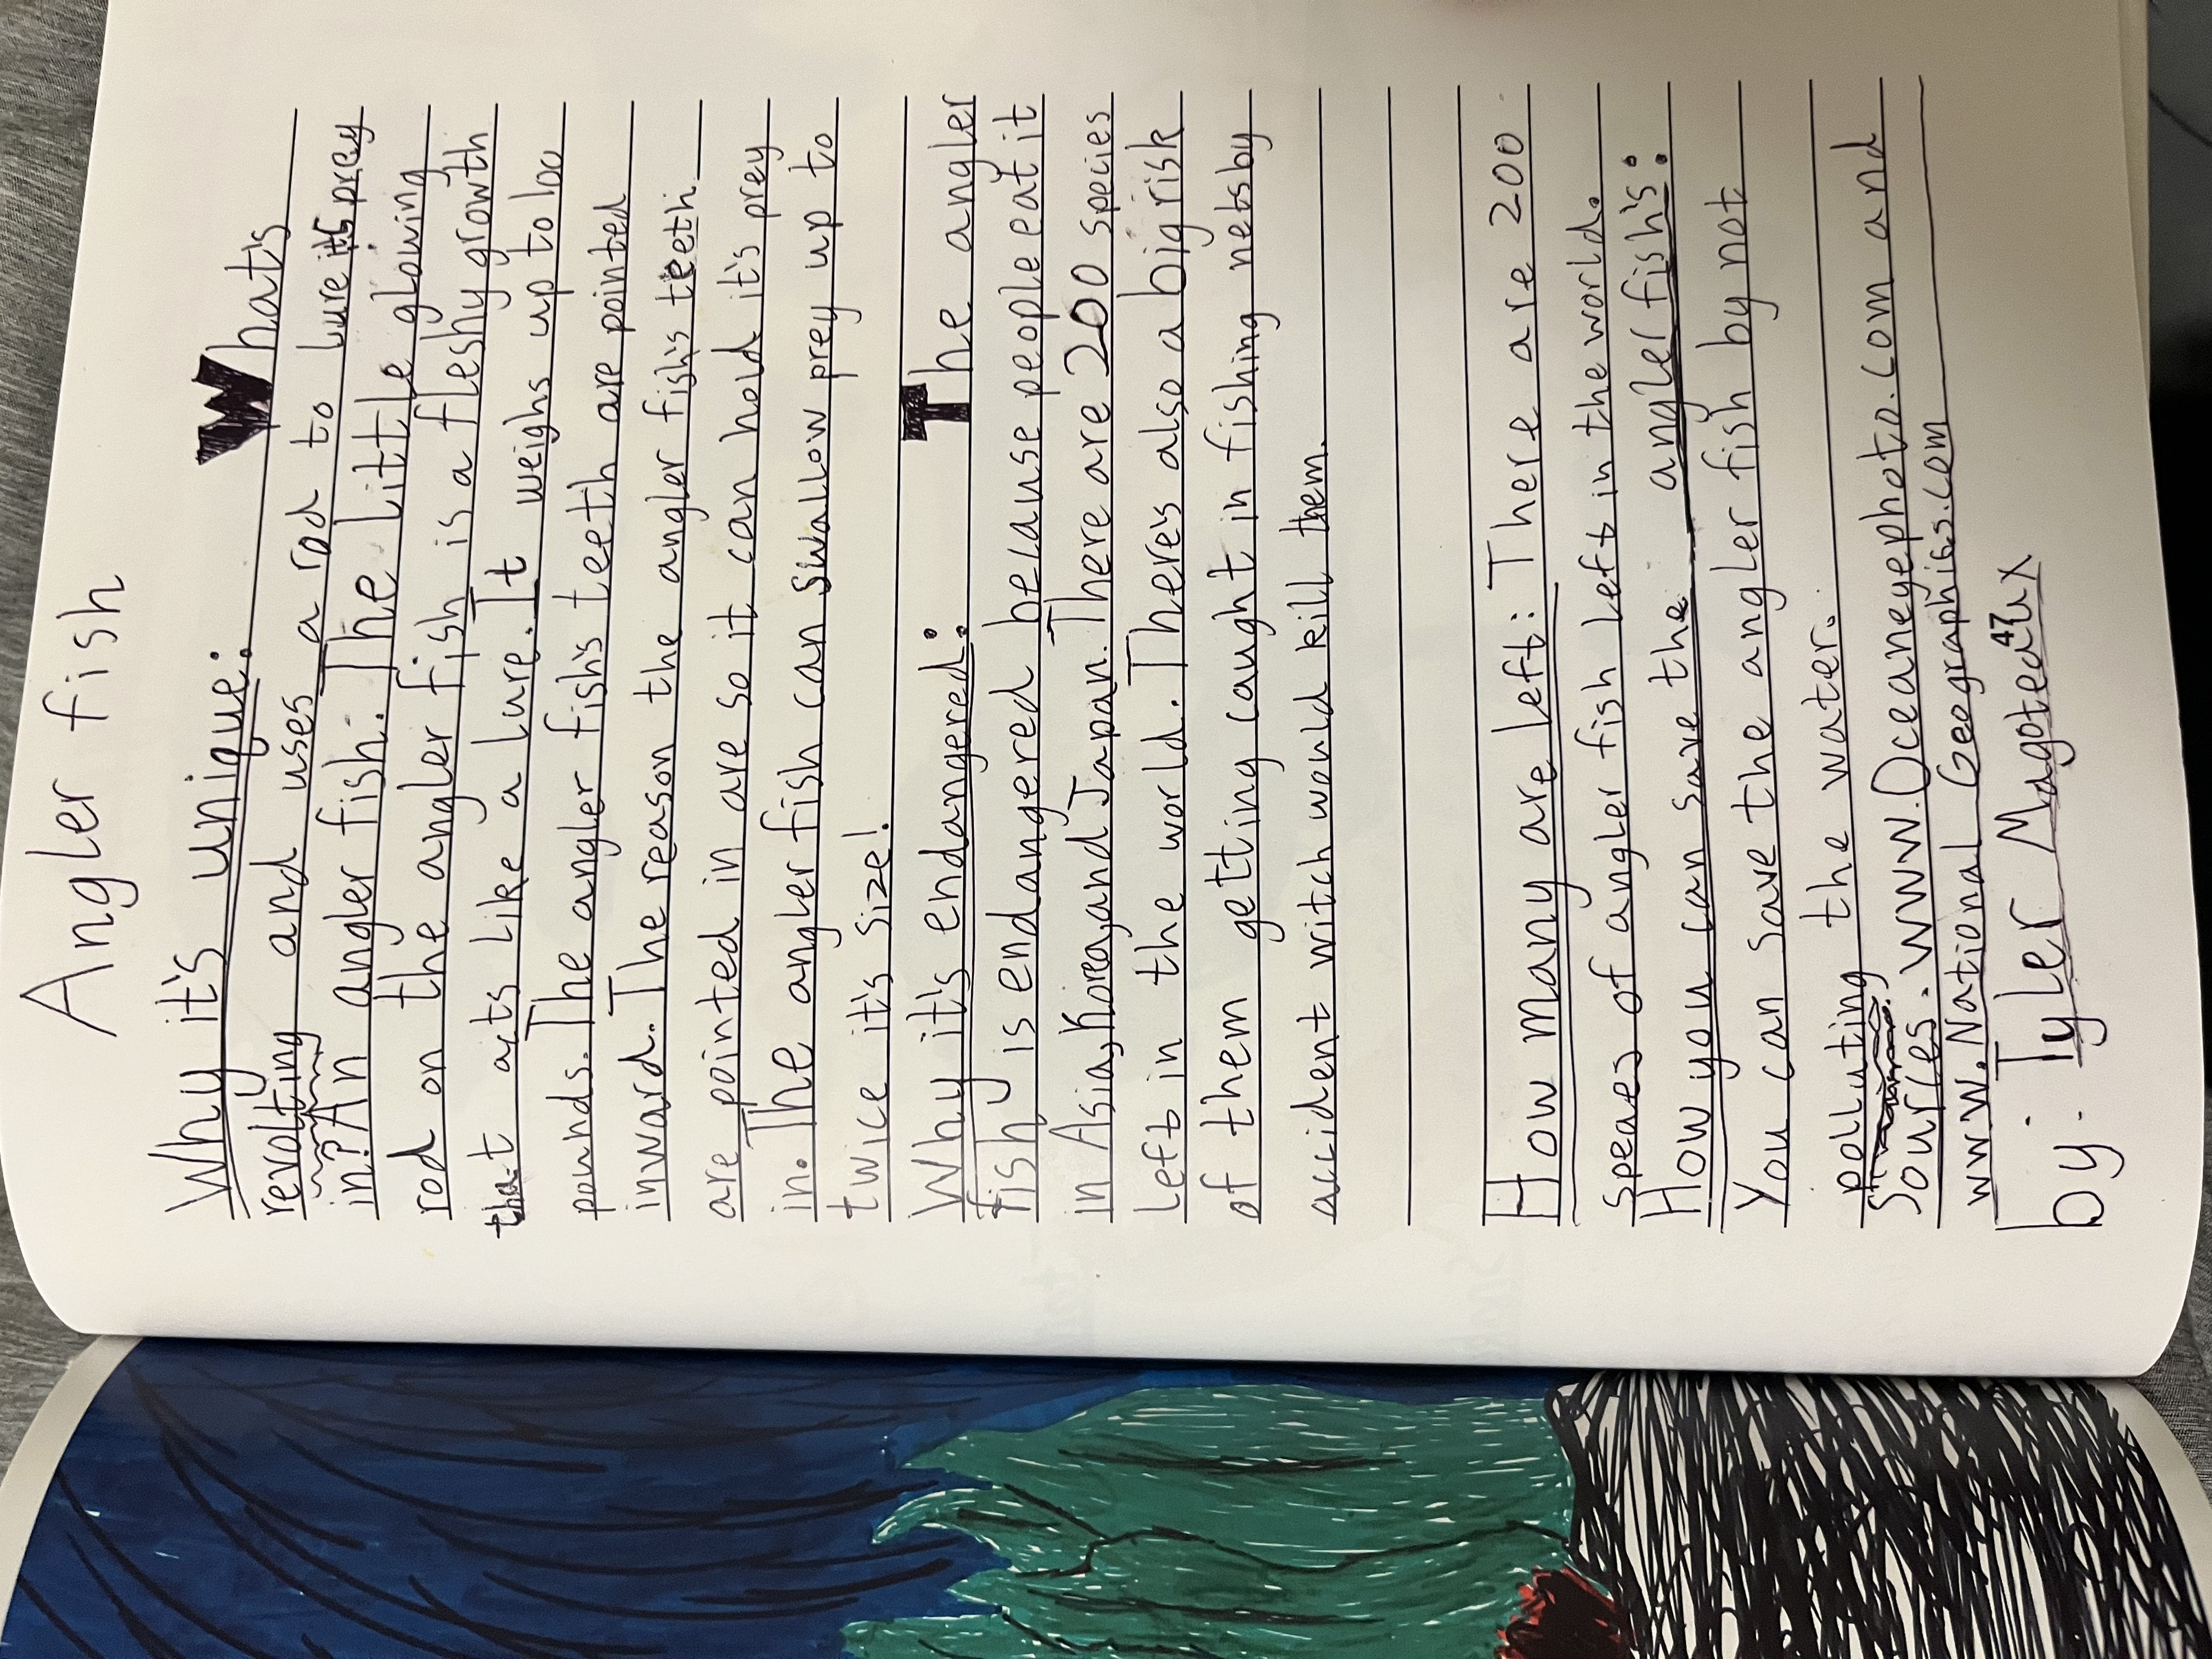 Angler fish
Why it's unique: Whats
revolting and uses a rod to lure it's prey
in? An angler fish. The little glowing
rod on the angler fish is a fleshy growth
that acts like a lure. It weighs up to 100
pounds. The angler fish's teeth are pointed
inward. The reason the angler fish's teeth
are pointed in are so it can hold it's prey
in. The angler fish can swallow prey up to
twice it's size!
Why it's endangered: The angler
fish is endangered because people eat it
in Asia, Korea, and Japan. There are 200 species
left in the world. There's also a big risk
of them getting caught in fishing nets by
accident witch would kill them.
How many are left: There are 200
speaes of angler fish left in the world.
How you can save the angler fish's:
You can save the angler fish by not
polluting the water.
Sources. www.Oceaneyephoto.com and
www.National Geographics.com
by: Tyler Magoteaux
47